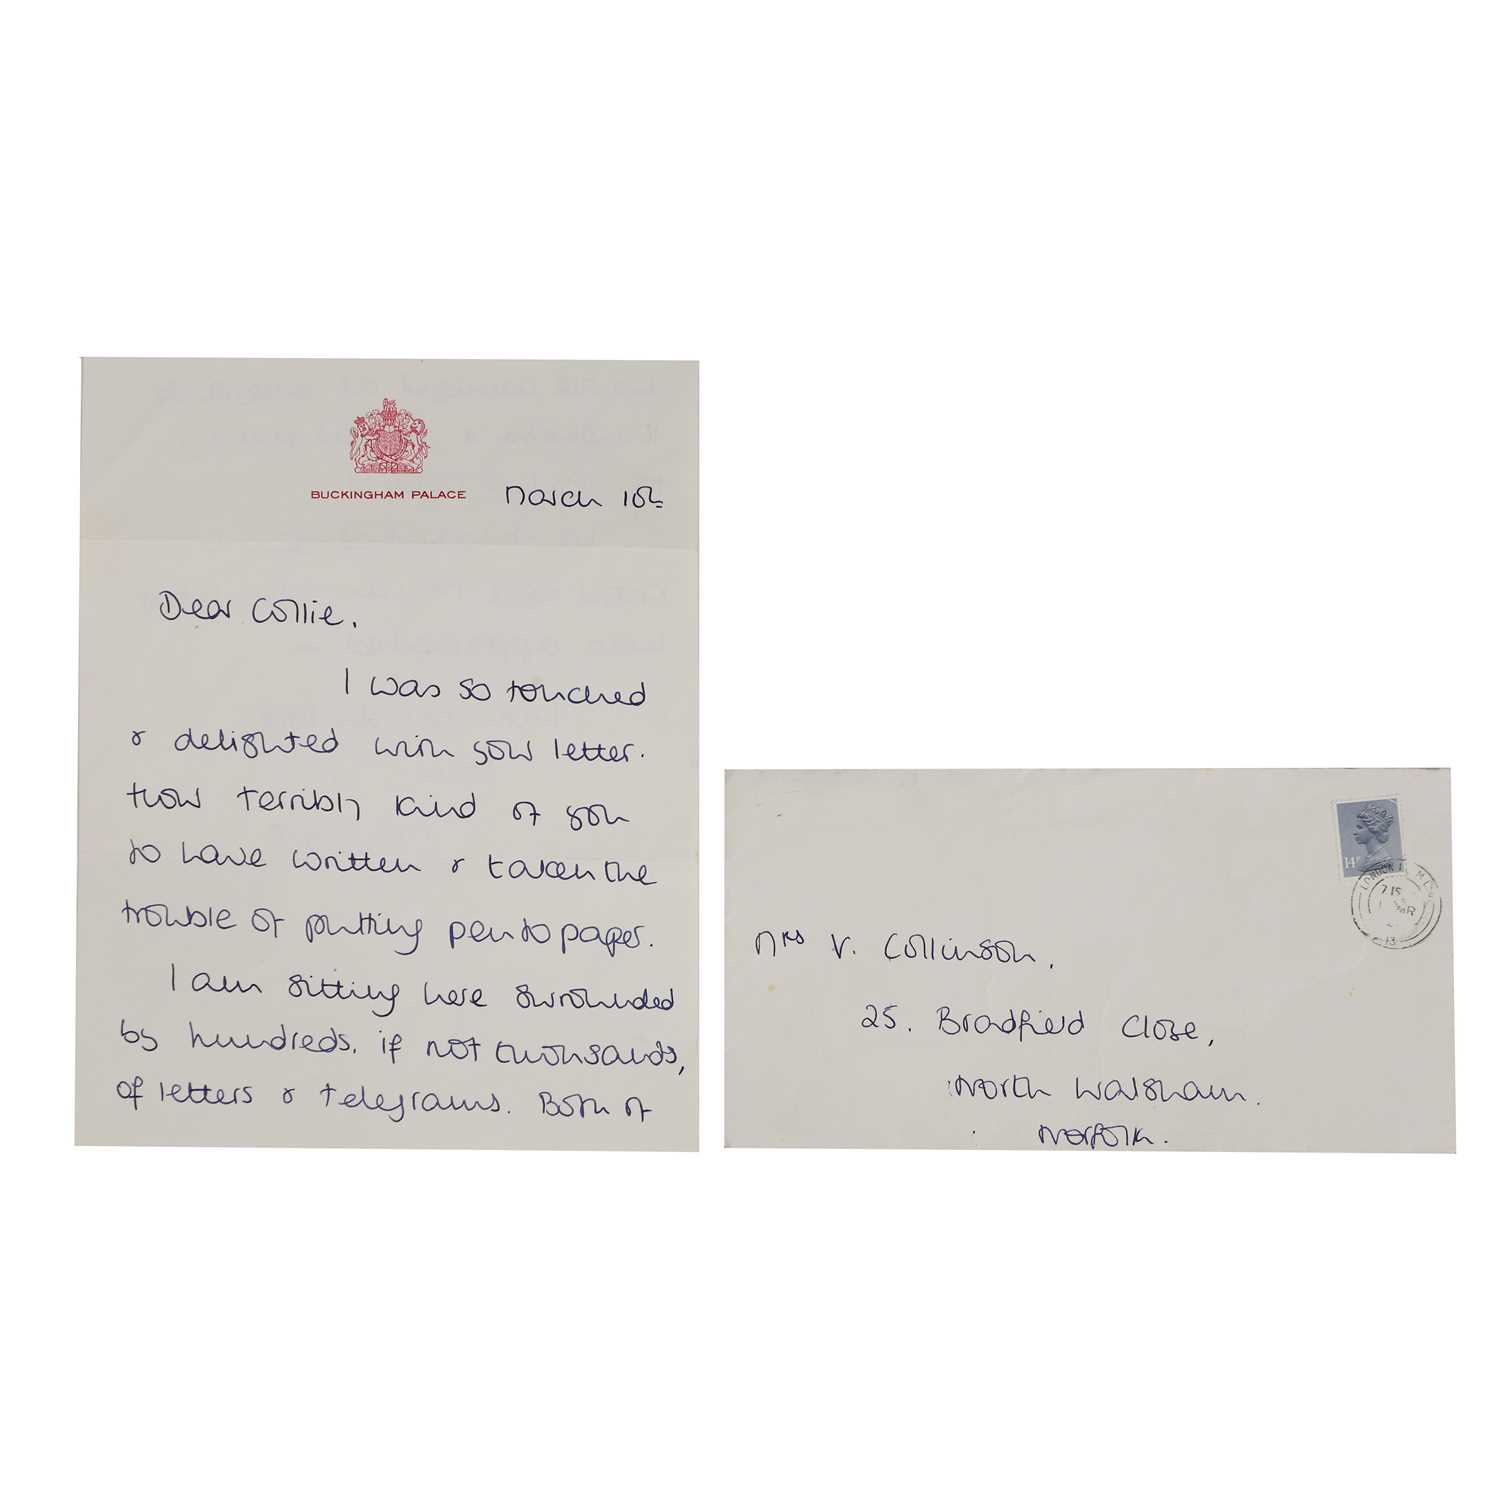 BUCKINGHAM PALACE
March 10th
Dear Collie,
I was so touched
& delighted with your letter.
How terribly kind of you
to have written & taken the
trouble of putting pen to paper.
I am sitting here surrounded
by hundreds, if not thousands,
of letters & telegrams. Both of
14P
LONDON
7 15
MAR
13
Mrs V. Collinson,
25. Bradfield Close,
North Walsham.
Norfolk.